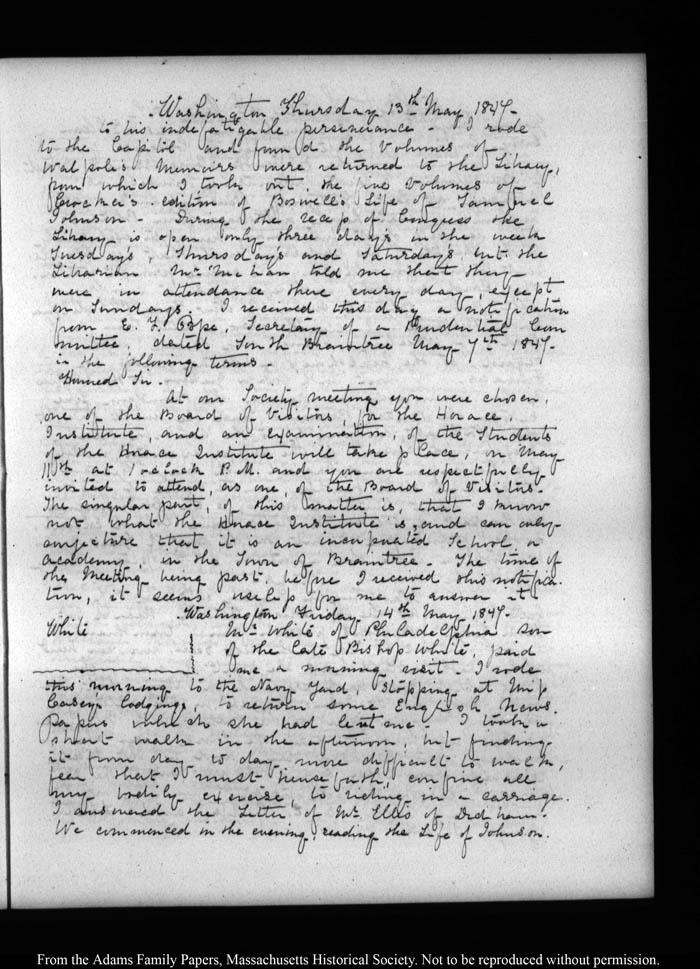 Washington Thursday 13th May 1847-
to his indefatigable perseverance - I rode
to the Capitol and found the Volumes of
Walpole's Memoirs were returned to the Library,
from which I took out the five Volumes of
Croker's edition of Boswell's Life of Samuel
Johnson - During the recess of Congress the
Library is open only three days in the week
Tuesdays, Thursdays and Saturdays, but the
Librarian Mr Mehan told me that they
were in attendance there every day, except
on Sundays. I received this day a notification
from E. F. Secretary of a Prudential Com
mittee, dated South Braintree May 7th 1847-
in the following terms -
Honored Sir -
At our Society meeting you were chosen,
one of the Board of Visitors, for the Horace
Institute, and an examination, of the Students
of the Horace Institute will take place, on May
11th at 1 o'clock P.M. and you are respectfully
invited to attend, as one, of the Board of Visitors-
The singular part, of this matter is, that I know
not what the Horace Institute is, and can only
conjecture that it is an incorporated School or
academy, in the Town of Braintree - The time of
the Meeting being past, before I received this notifica
tion, it seems useless for me to answer it
Washington Friday 14th May 1847-
White
Mr White of Philadelphia son
of the late Bishop White, paid
me a morning visit - I rode
this morning to the Navy Yard, Stopping at Miss
Caseys lodgings, to return some English News.
Papers which she had lent me - I took a
short walk in the afternoon, but finding
it from day to day more difficult to walk,
fear that I must henceforth, confine all
my bodily exercise, to riding in a carriage.
I answered the Letter of Mr. Ellis of Dedham-
We commenced in the evening, reading the Life of Johnson.
From the Adams Family Papers, Massachusetts Historical Society. Not to be reproduced without permission.